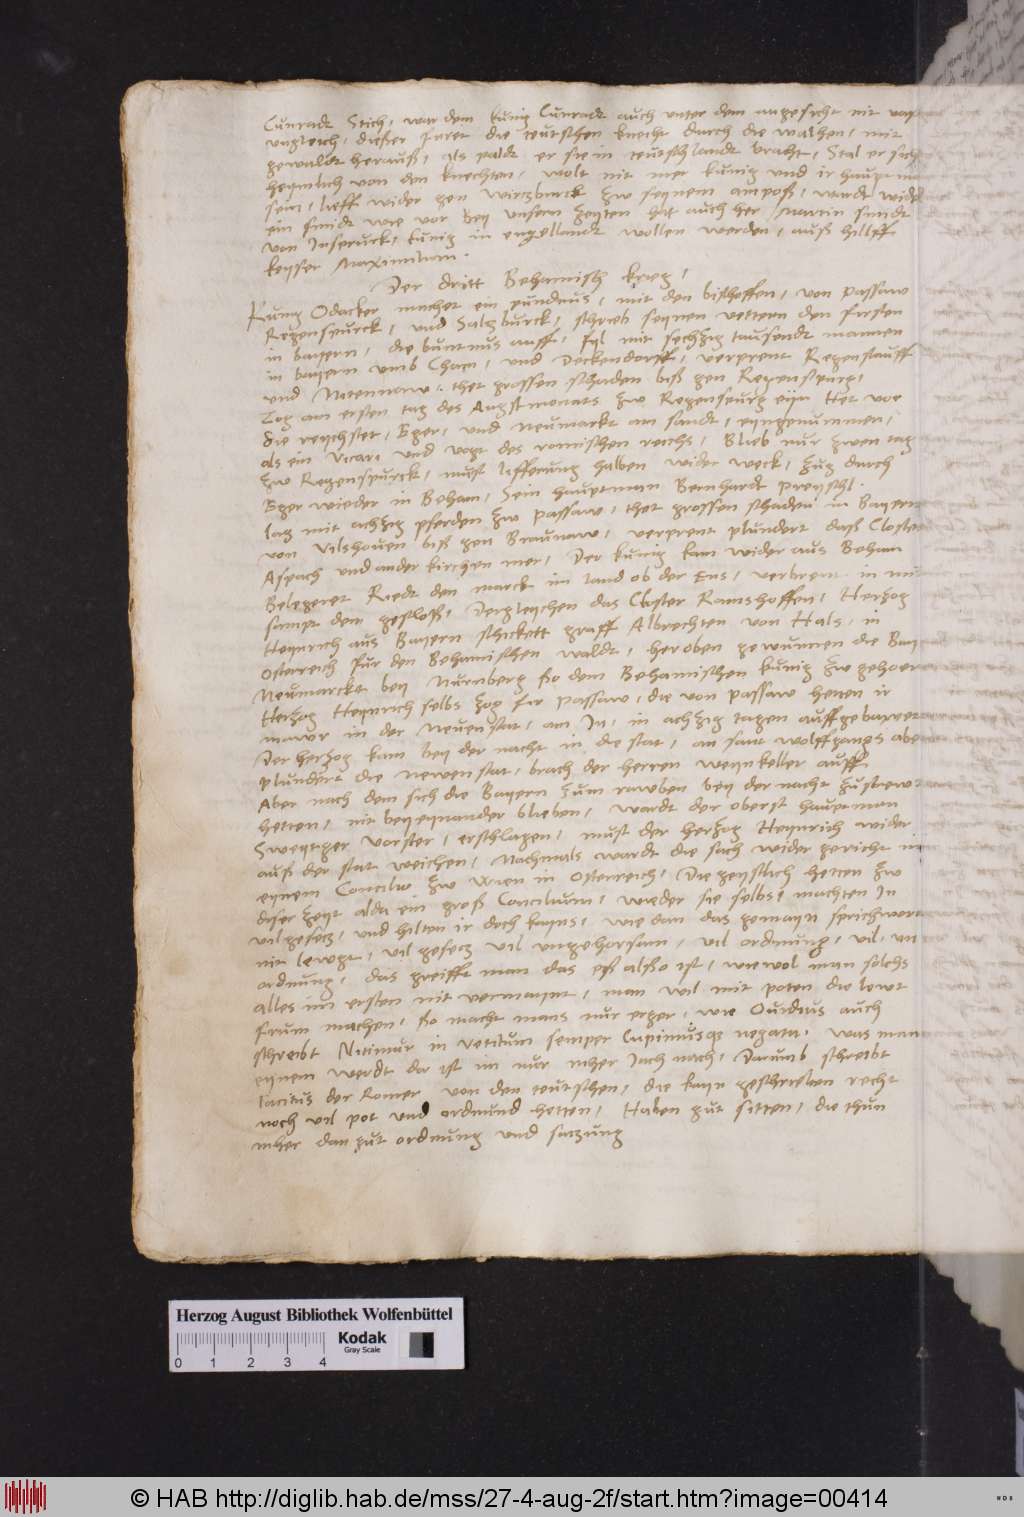 Cunradt Stich, war dem kunig Cunradt auch unter dem angesicht nit
ungleich, dießer furet die teutschen knecht durch die walhen, mit
gewaldt herauß, als paldt er sie in teutschlandt bracht, Stal er sich
heymlich von den knechten, wolt nit mer kunig und ir hauptman
sein, lieff wider gen wirtzburck zw seynem ampoß, wardt wider
ein smidt wie vor Bey unsern zeyten hat auch her Martin smidt
von Inspruck, kunig in engellandt wollen werden, auß hillff
keyser Maximilian.
Der dritt Behamisch krieg,
Kunig Odacker machet ein pundnus, mit den bischoffen, von Passaw
Regenspurck, und Saltzburck, schreib seynen vettern den fursten
in bayern, die buntnus auff, fyl mit sechzig tausendt mannen
in bayern umb Cham, und Deckendorff, verprent Regenstauff
und Nitennaw, thet grossen schaden biß gen Regenspurg,
Zog am ersten tag des Augstmonats zw Regenspurg eyn Het vor
die reychstet, Eger, und Neumarckt am sandt, eyngenummen,
als ein Vicari und vogt des romischen reichs, Blieb nur zwen tag
zw Regenspurck, must lifferung halben wider weck, zug durch
Eger wieder in Beham, Sein hauptman Bernhardt Preyschl
lag mit achzig pferden zw Passaw, thet grossen schaden in Bayern
von Vilshouen biß gen Braunaw, verprent plundert daß Closter
Aspach und ander kirchen mer, Der kunig kam wider aus Beham
Belegeret Riedt den marck im land ob der Ens, verbrent in mit
sampt dem geschloß, Dergleychen das Closter Ramshoffen, Hertzog
Heynrich aus Bayern schickett graff Albrechten von Hals, in
Osterreich fur den Behamischen waldt, heroben gewunnen die Bay
Neumarckt bey Nurnberg so dem Behamischen kunig zw gehoer
Hertzog Heynrich selbs zog fir Passaw, die von Passaw hetten ir
mawr in der Neuenstat, am In, in achzig tagen auffgebawet
Der hertzog kam bey der nacht in die stat, an sant wolffgangs abe
plundert die newenstat, brach der herren weynkeller auff,
Aber nach dem sich die Bayern zum rawben bey der nacht zustrewt
hetten, nit beyeynander blieben, wardt der oberst hauptman
Sweytger Vorster, erschlagen, must der hertzog Heynrich wider
auß der stat weichen, Nachmals wardt die sach wider gericht in
eynem Concilio zw Wien in Osterreich, Die geystlich hetten zw
diser zeyt alda ein groß Concilium, wieder sie selbst machten In
vil gesetz, und hilten ir doch kayns, wie dan das gemayn sprichwort
nit lewgt, vil gesetz vil ungehorsam, vil ordnung, vil un
ordnung, das greifft man das eß alßo ist, wiewol man solchs
alles im ersten nit vermaynt, man wil mit poten die lewt
frum machen, so macht mans nur erger, wie Ouidius auch
schreibt Nitimur in vetitum semper Cupimusque negata, was man
eynem werdt da ist im nur mher Jach nach, Darumb schreibt
Tacitus der Romer von den teutschen, die kayn geschrieben recht
noch vil pot und ordnund hetten, Haben gut sitten, die thun
mher dan gut ordnung und satzung
Herzog August Bibliothek Wolfenbüttel
Kodak
Gray Scale
0 1 2 3 4
© HAB http://diglib.hab.de/mss/27-4-aug-2f/start.htm?image=00414